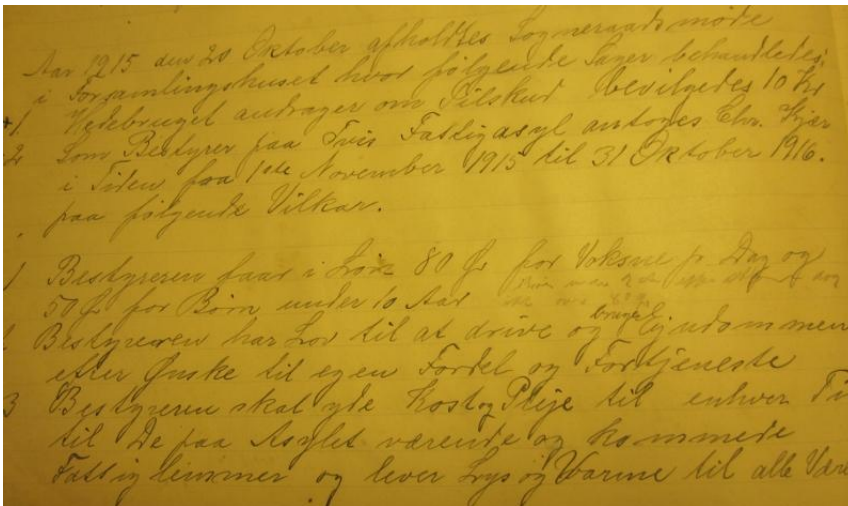 Aar 1915 den 20 Oktober afholdtes Sogneraadsmøde
i Forsamlingshuset hvor følgende Sager behandledes.
+1 Hedebruget andrager om Tilskud bevilgedes 10 Kr
2 Som Bestyrer paa Tvis Fattigasyl antoges Chr. Kjær
i Tiden fra 1ste November 1915 til 31 Oktober 1916.
paa følgende Vilkar.
1 Bestyreren faar i Løn 80 Ør for Voksne p. Dag og
50 Ør for Børn under 10 Aar
bruge
2 Bestyreren har Lov til at drive og Ejendommen
efter Ønske til egen Fordel og Fortjeneste
3 Bestyreren skal yde Kost og Pleje til enhver Ti
til De paa Asylet værende og kommede
Fattiglemmer og lever Lys og Varme til alle Være